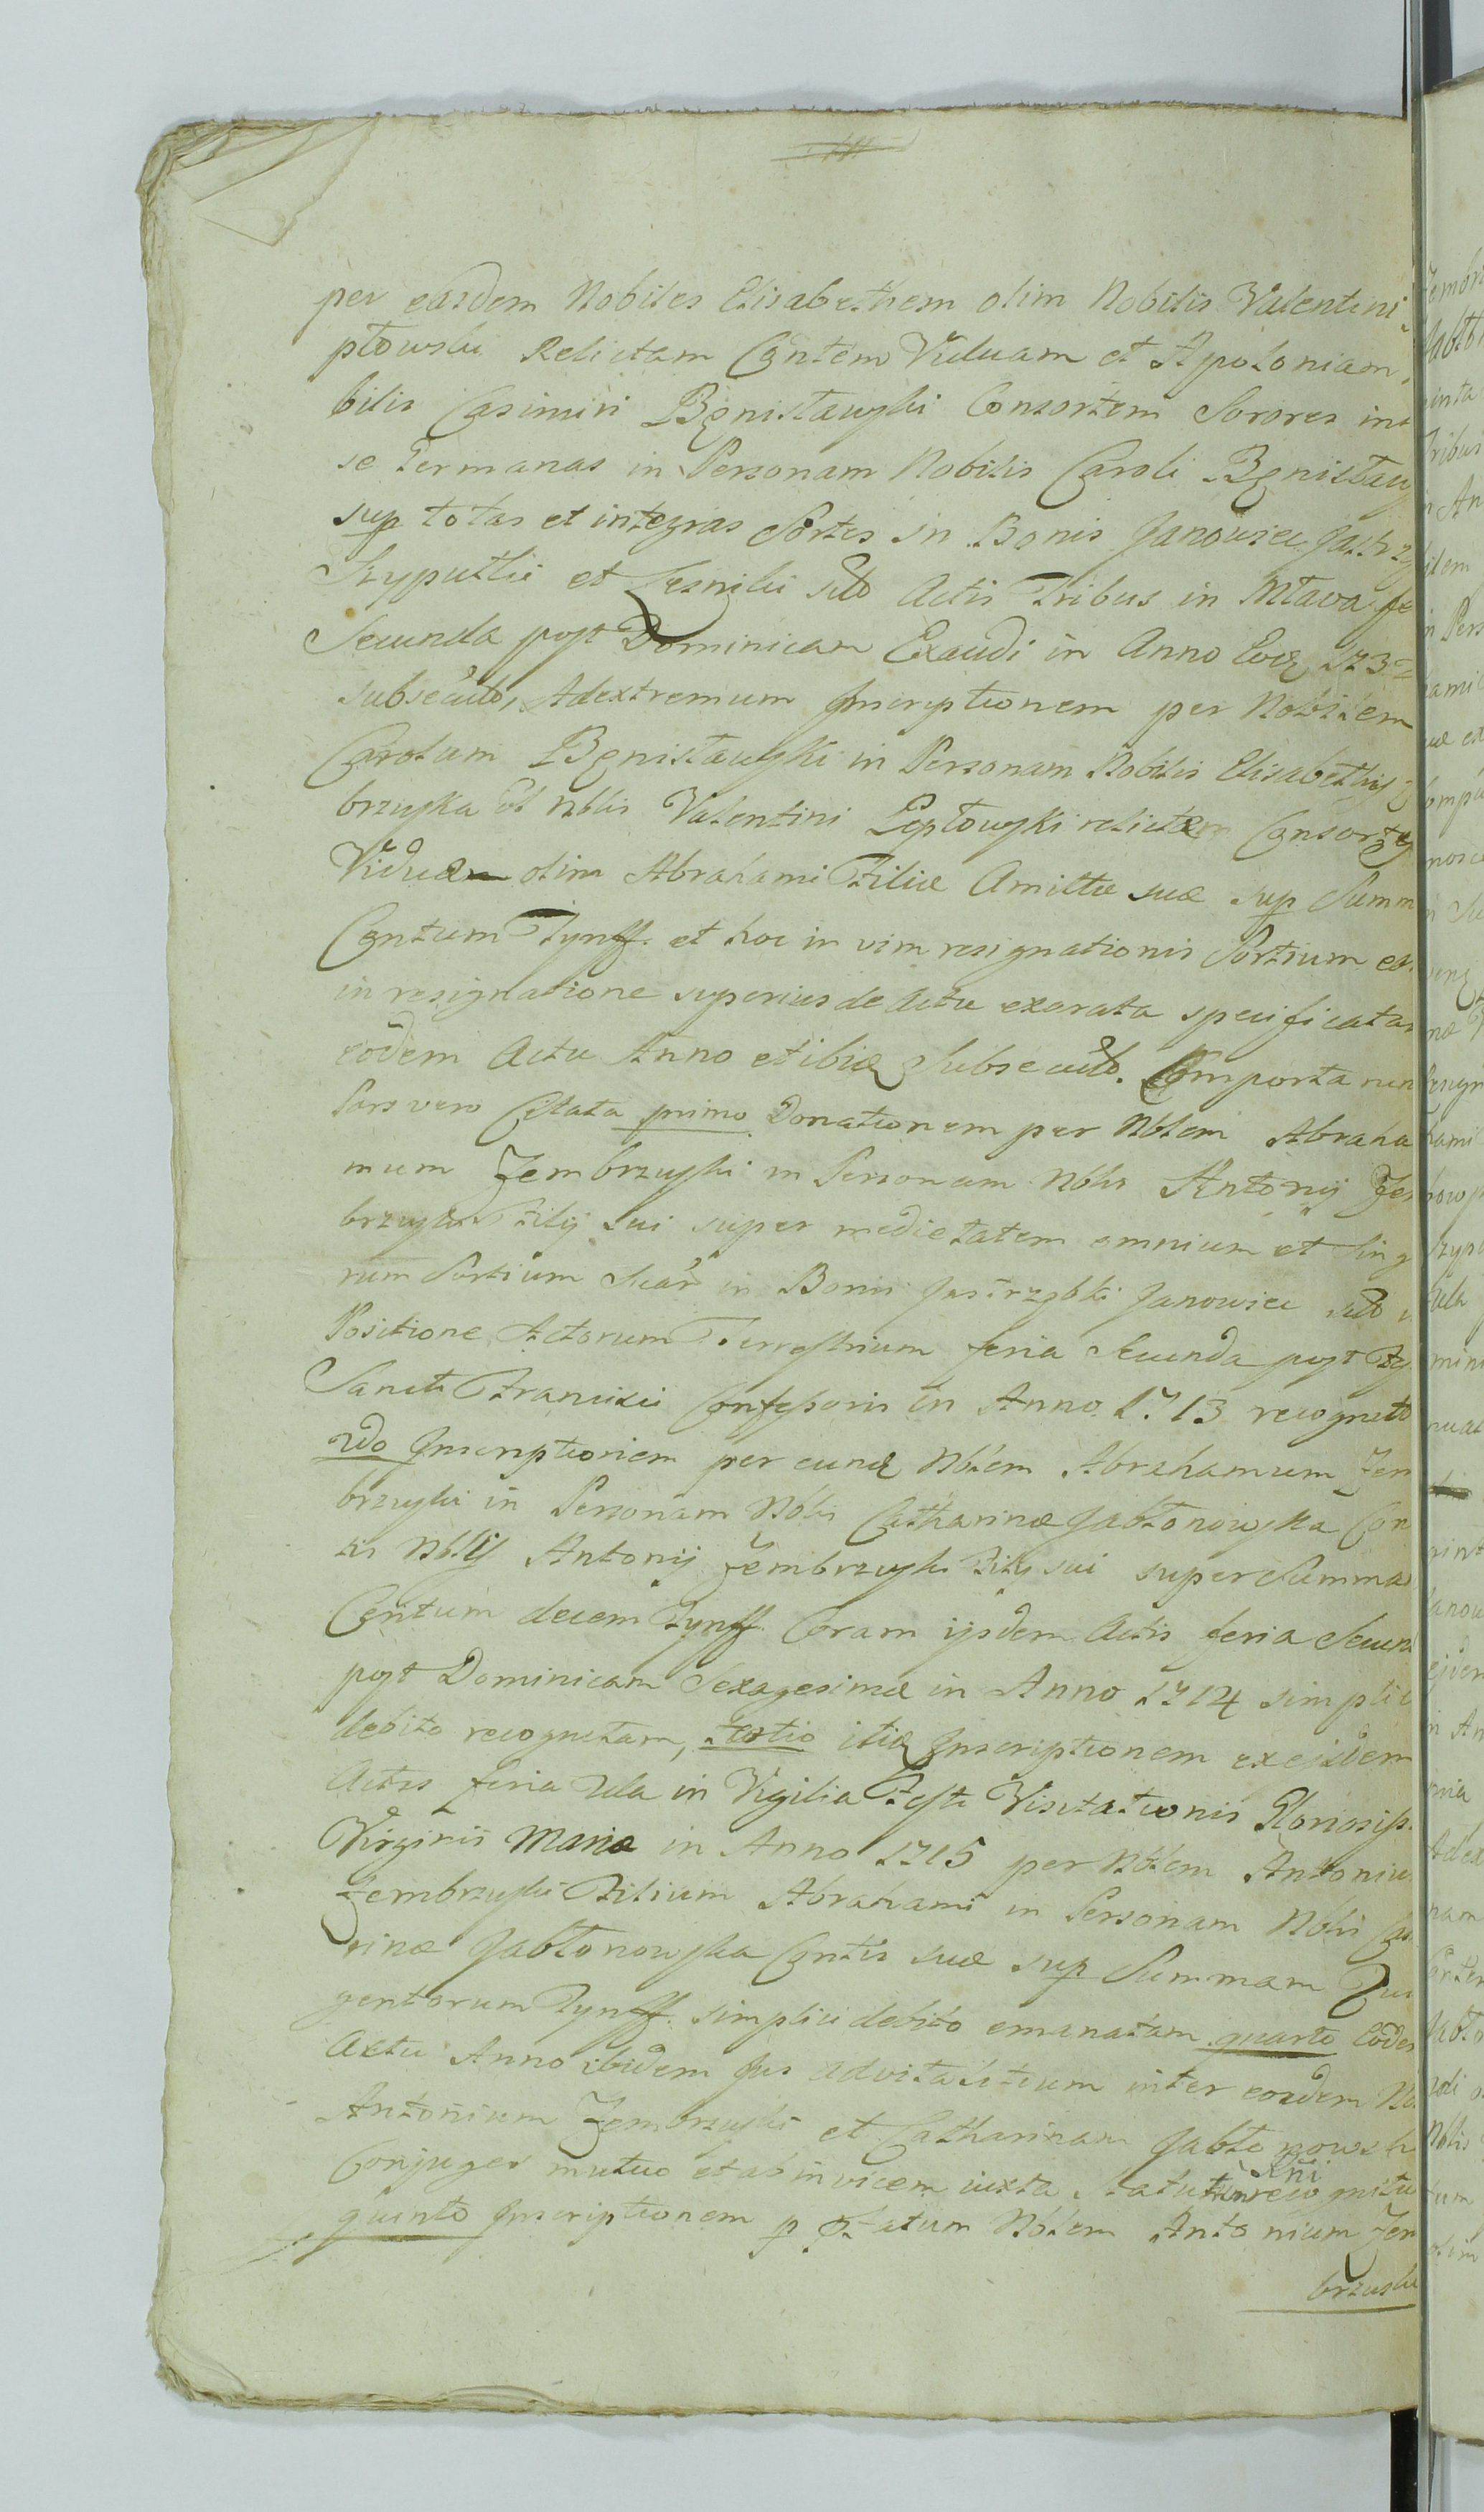 per easdem Nobiles Elisabethem olim Nobilis Valentini
ptowski Relictam Contem Viduam et Apoloniam
bilis Casimiri Bęnisławski Consortem Sorores int
se Germanas in Personam Nobilis Caroli Bęnisław
sup totas et integras Sortes in Bonis Janowiec Jastrzę
Szyputki et Leśniki sub Actis Tribus in Mława fe
Secunda post Dominicam Exaudi in Anno 173
subsecuto, Adextremum Inscriptionem per Nobilem
Carolum Bęnisławski in Personam Nobilis Elisabethis
brzuska Ol Nblis Valentini Łepłowski relictæ Consortis
Viduæ olim Abrahami Filiæ Amittæ suæ sup Summ
Centum Tynff. et hoc in vim resignationis Sortium
in resignatione superius de Actu exarata specificatar
eodem Actu Anno et ibidę Subsecuto. Comporta
Pars vero Citata primo Donationem per Nblem Abraha
mum Zembrzuski in Personam Nblis Antonij Zem
brzuski Filij sui super medietatem omnium et Sing
rum Sortium Suar̃ in Bonis Jastrzębki Janowiec sub
Positione Actorum Terrestrium feria Secunda post
Sancti Francisci Confessoris in Anno 1713 recognit
2do Inscriptionem per eundę Nblem Abrahamum Zem
brzuski in Personam Nblis Catharinæ Jabłonowska Con
tis Nblis Antonij Zembrzuski Filij sui super Summa
Centum decem Tynff. Coram ijsdem Actis feria Secun
post Dominicam Sexagesimæ in Anno 1714 simplici
debito recognitam, tertio itidę Inscriptionem ex ejsdem
Actis feria 2da in Vigilia Festi Visitationis Gloriosiss.
Virginis Mariæ in Anno 1715 per Nblem Antoniu
Zembrzuski Filium Abrahami in Personam Nblis Ca
rinæ Jabłonowska Contis suæ sup Summam
gentorum Tynff. simplici debito emanatam quarto Eode
Actu Anno ibidem Jus advitalitium inter eosdem
Antonium Zembrzuski et Catharinam Jabłonowsk
Conjuges mutuo et ab invicem iuxta Statutum recognitu
quinto Inscriptionem p Nblem Antonium Zem
brzuski